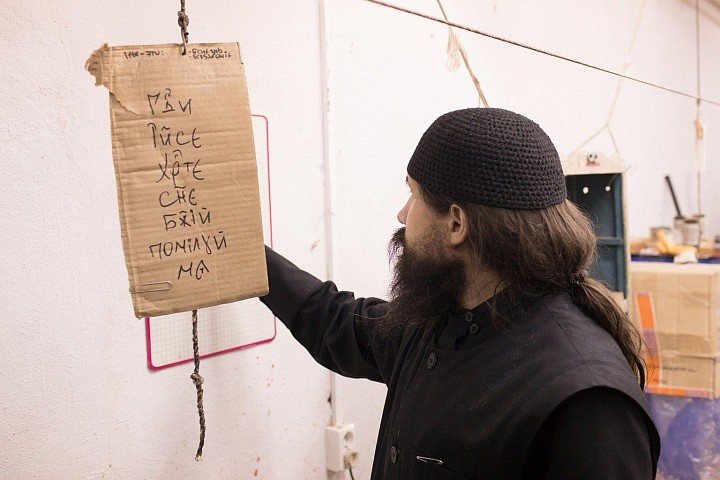 Гд҃и
Ії҃се
Хр҃те
Сн҃е
Бж҃ій
помілуй
мѧ